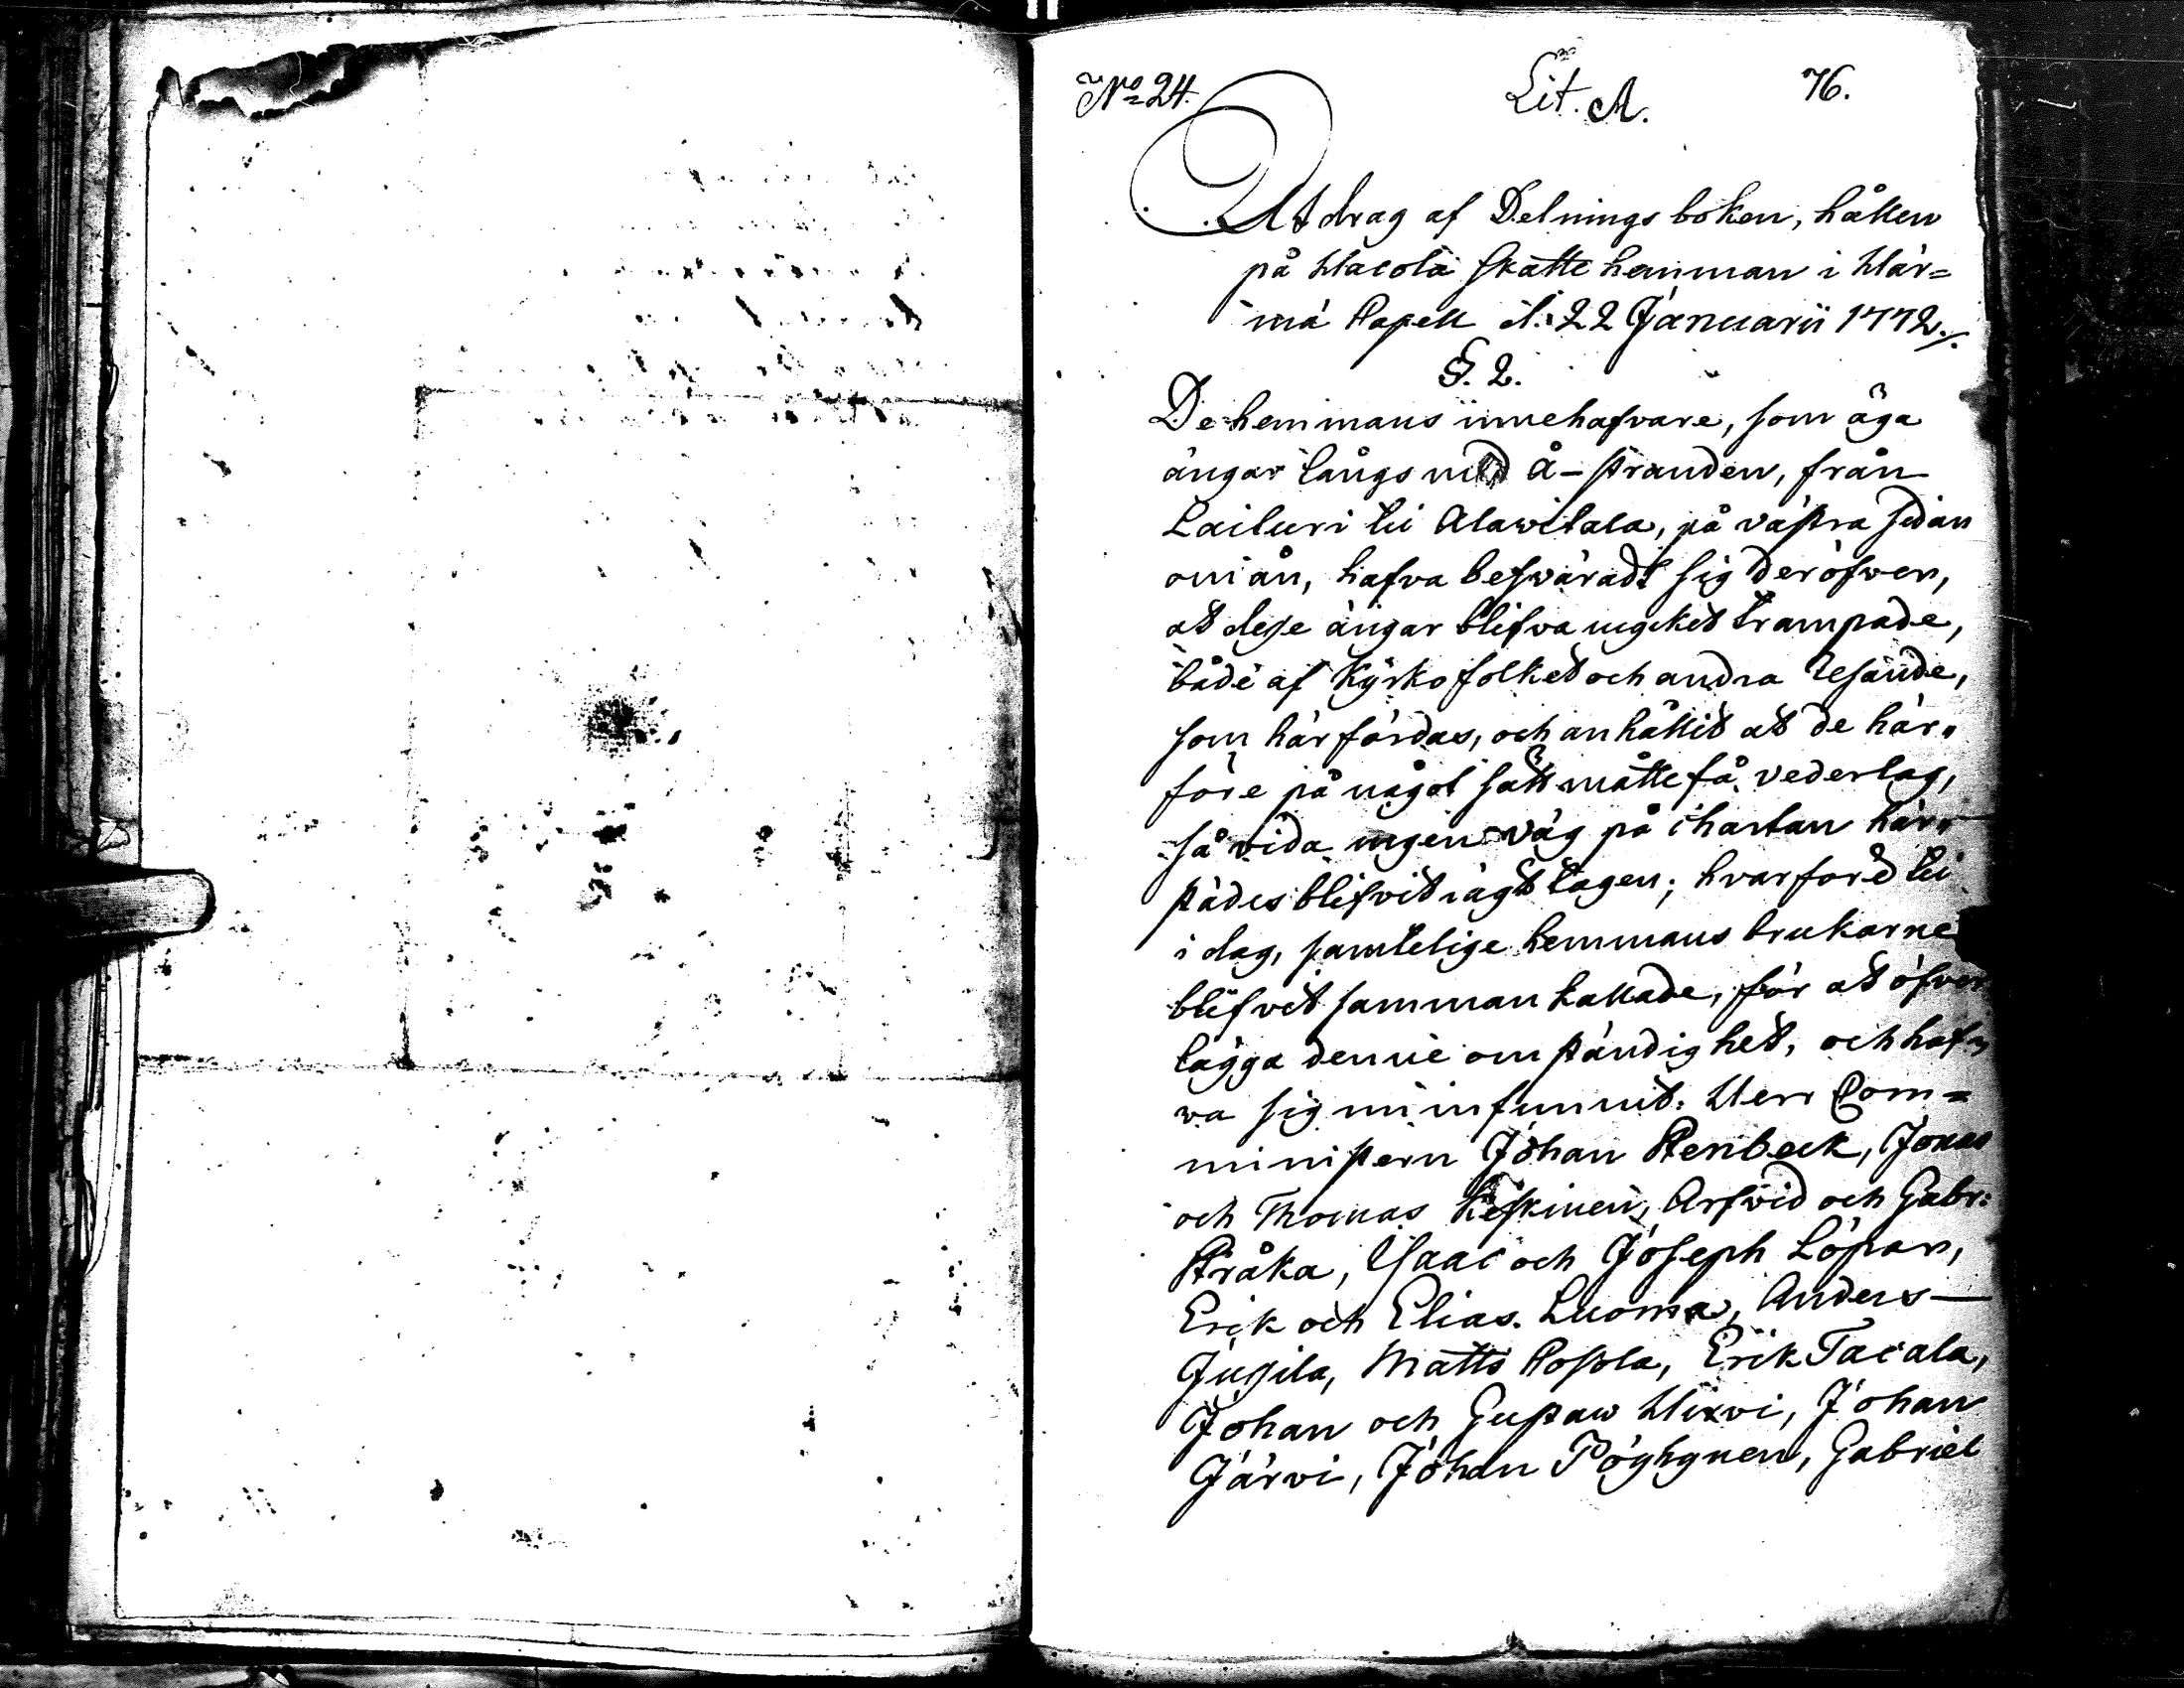 No 24. Lit. A. 76.
Utdrag af Delnings boken, hållen
på Hacola skatte hemman i Här=
mä Capell d: 22 Januarii 1772./.
§. 2.
De hemmans innehafvare, som äga
ängar långs med å-stranden, från
Lailuri til Alawitala, på västra sidan
om ån, hafva beswäradt sig deröfwer,
at desse ängar blifva mycket trampade,
både af Kyrkofolket och andra Resande,
som här färdas, och anhållit at de här„
före på något sätt måtte få vederlag,
så vida ingen väg på chartan här„
städes blifvit utlagd tagen; hvarföre til
i dag, samtelige hemmans brukarne
blifvit samman kallade, för at öfver
lägga denne omständighet, och haf„
va sig nu infunnit: Herr Com=
ministern Johan Stenbeck, Jonas
och Thomas Keskinen, Arfwid och Gabr:
Stråka, Isaac och Joseph Löpar,
Erik och Elias Luoma, Anders
Jussila, Matts Passola, Erik Tacala,
Johan och Gustaw Hirvi, Johan
Järvi, Johan Pöyhynen, Gabriel